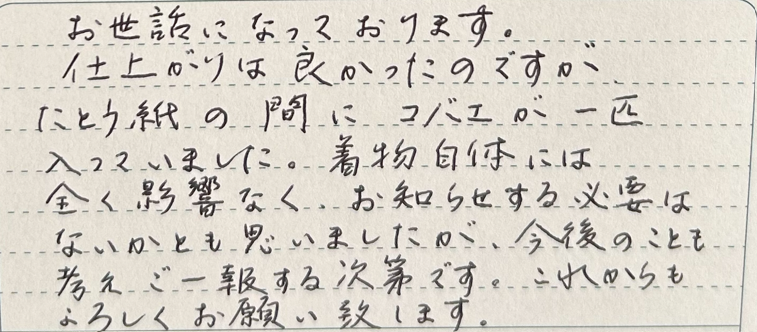 お世話になっております。
仕上がりは良かったのですが、
たとう紙の間にコバエが一匹
入っていました。着物自体には
全く影響なく、お知らせする必要は
ないかとも思いましたが、今後のことも
考えご一報する次第です。これからも
よろしくお願い致します。